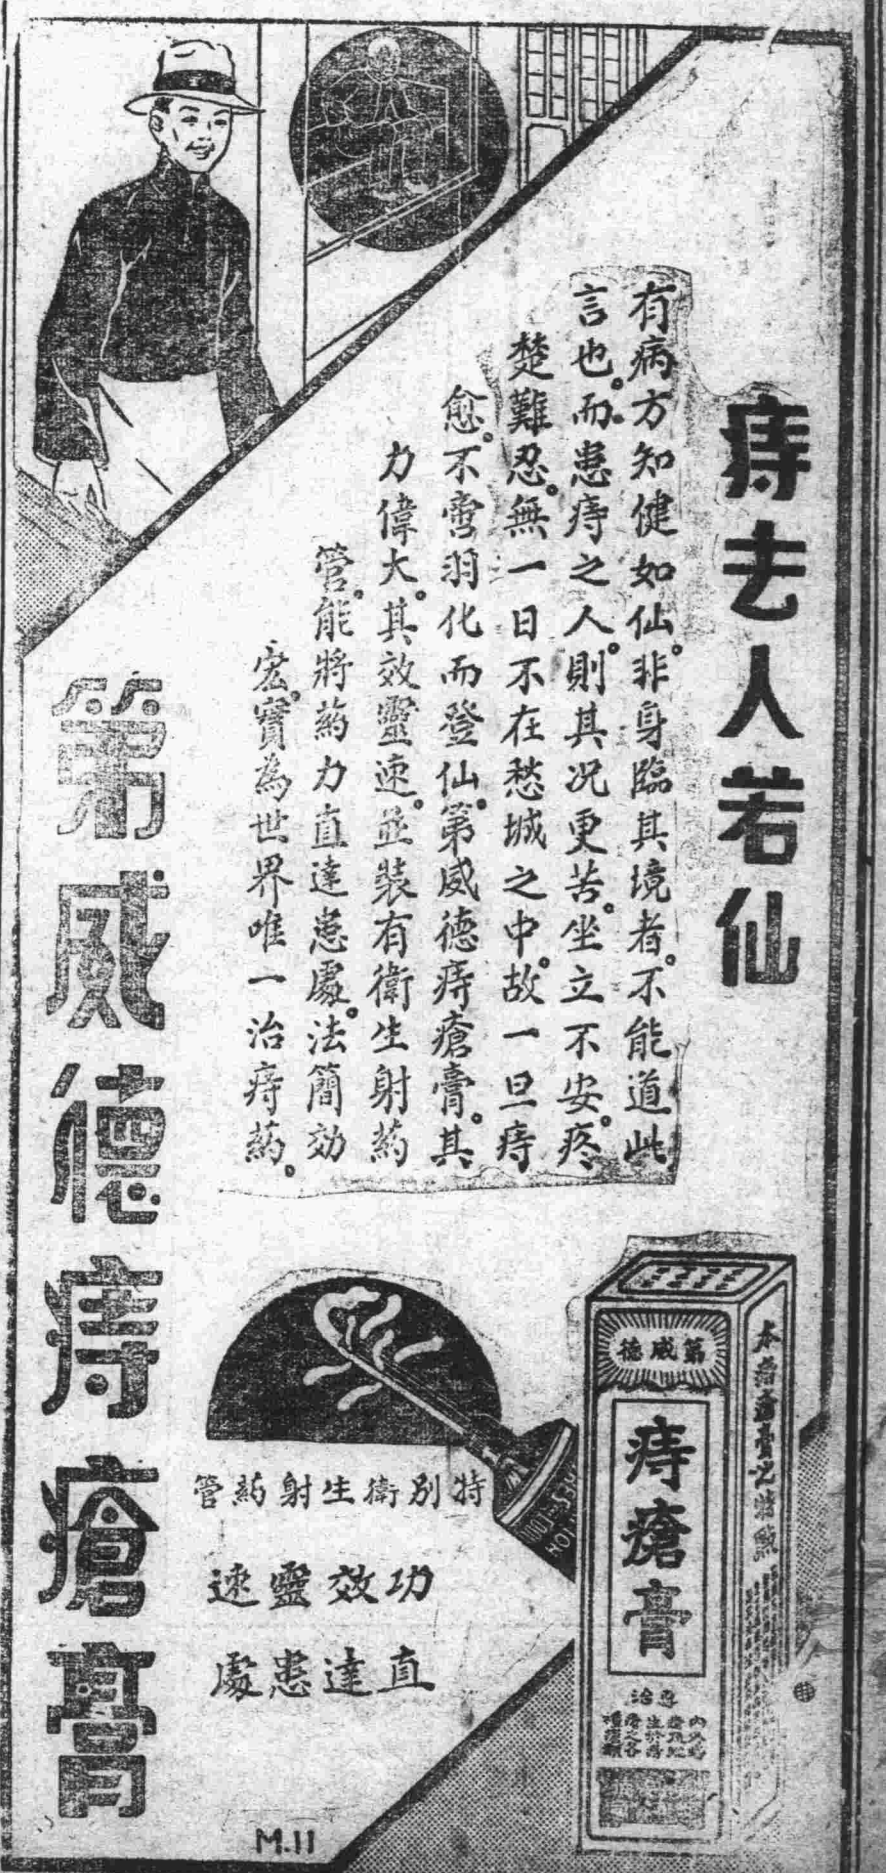 痔去人若仙
有病方知健如仙。非身臨其境者。不能道此
言也。而患痔之人。則其况更苦。坐立不安。疼
楚難忍。無一日不在愁城之中。故一旦痔
愈。不啻羽化而登仙。第威德痔瘡膏。其
力偉大。其效靈速。並裝有衛生射藥
管。能將藥力直達患處。法簡効
宏。實為世界唯一治痔藥。
第威德痔瘡膏
特別衛生射藥管
功效靈速
直達患處
第威德
痔瘡膏
專治
M.11